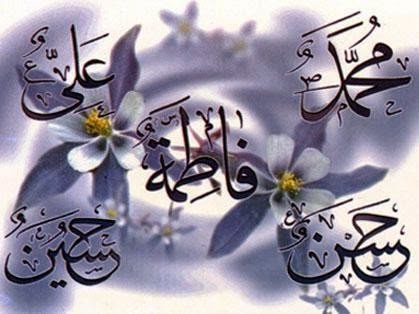 محمد علي
فاطمة
حسن حسين